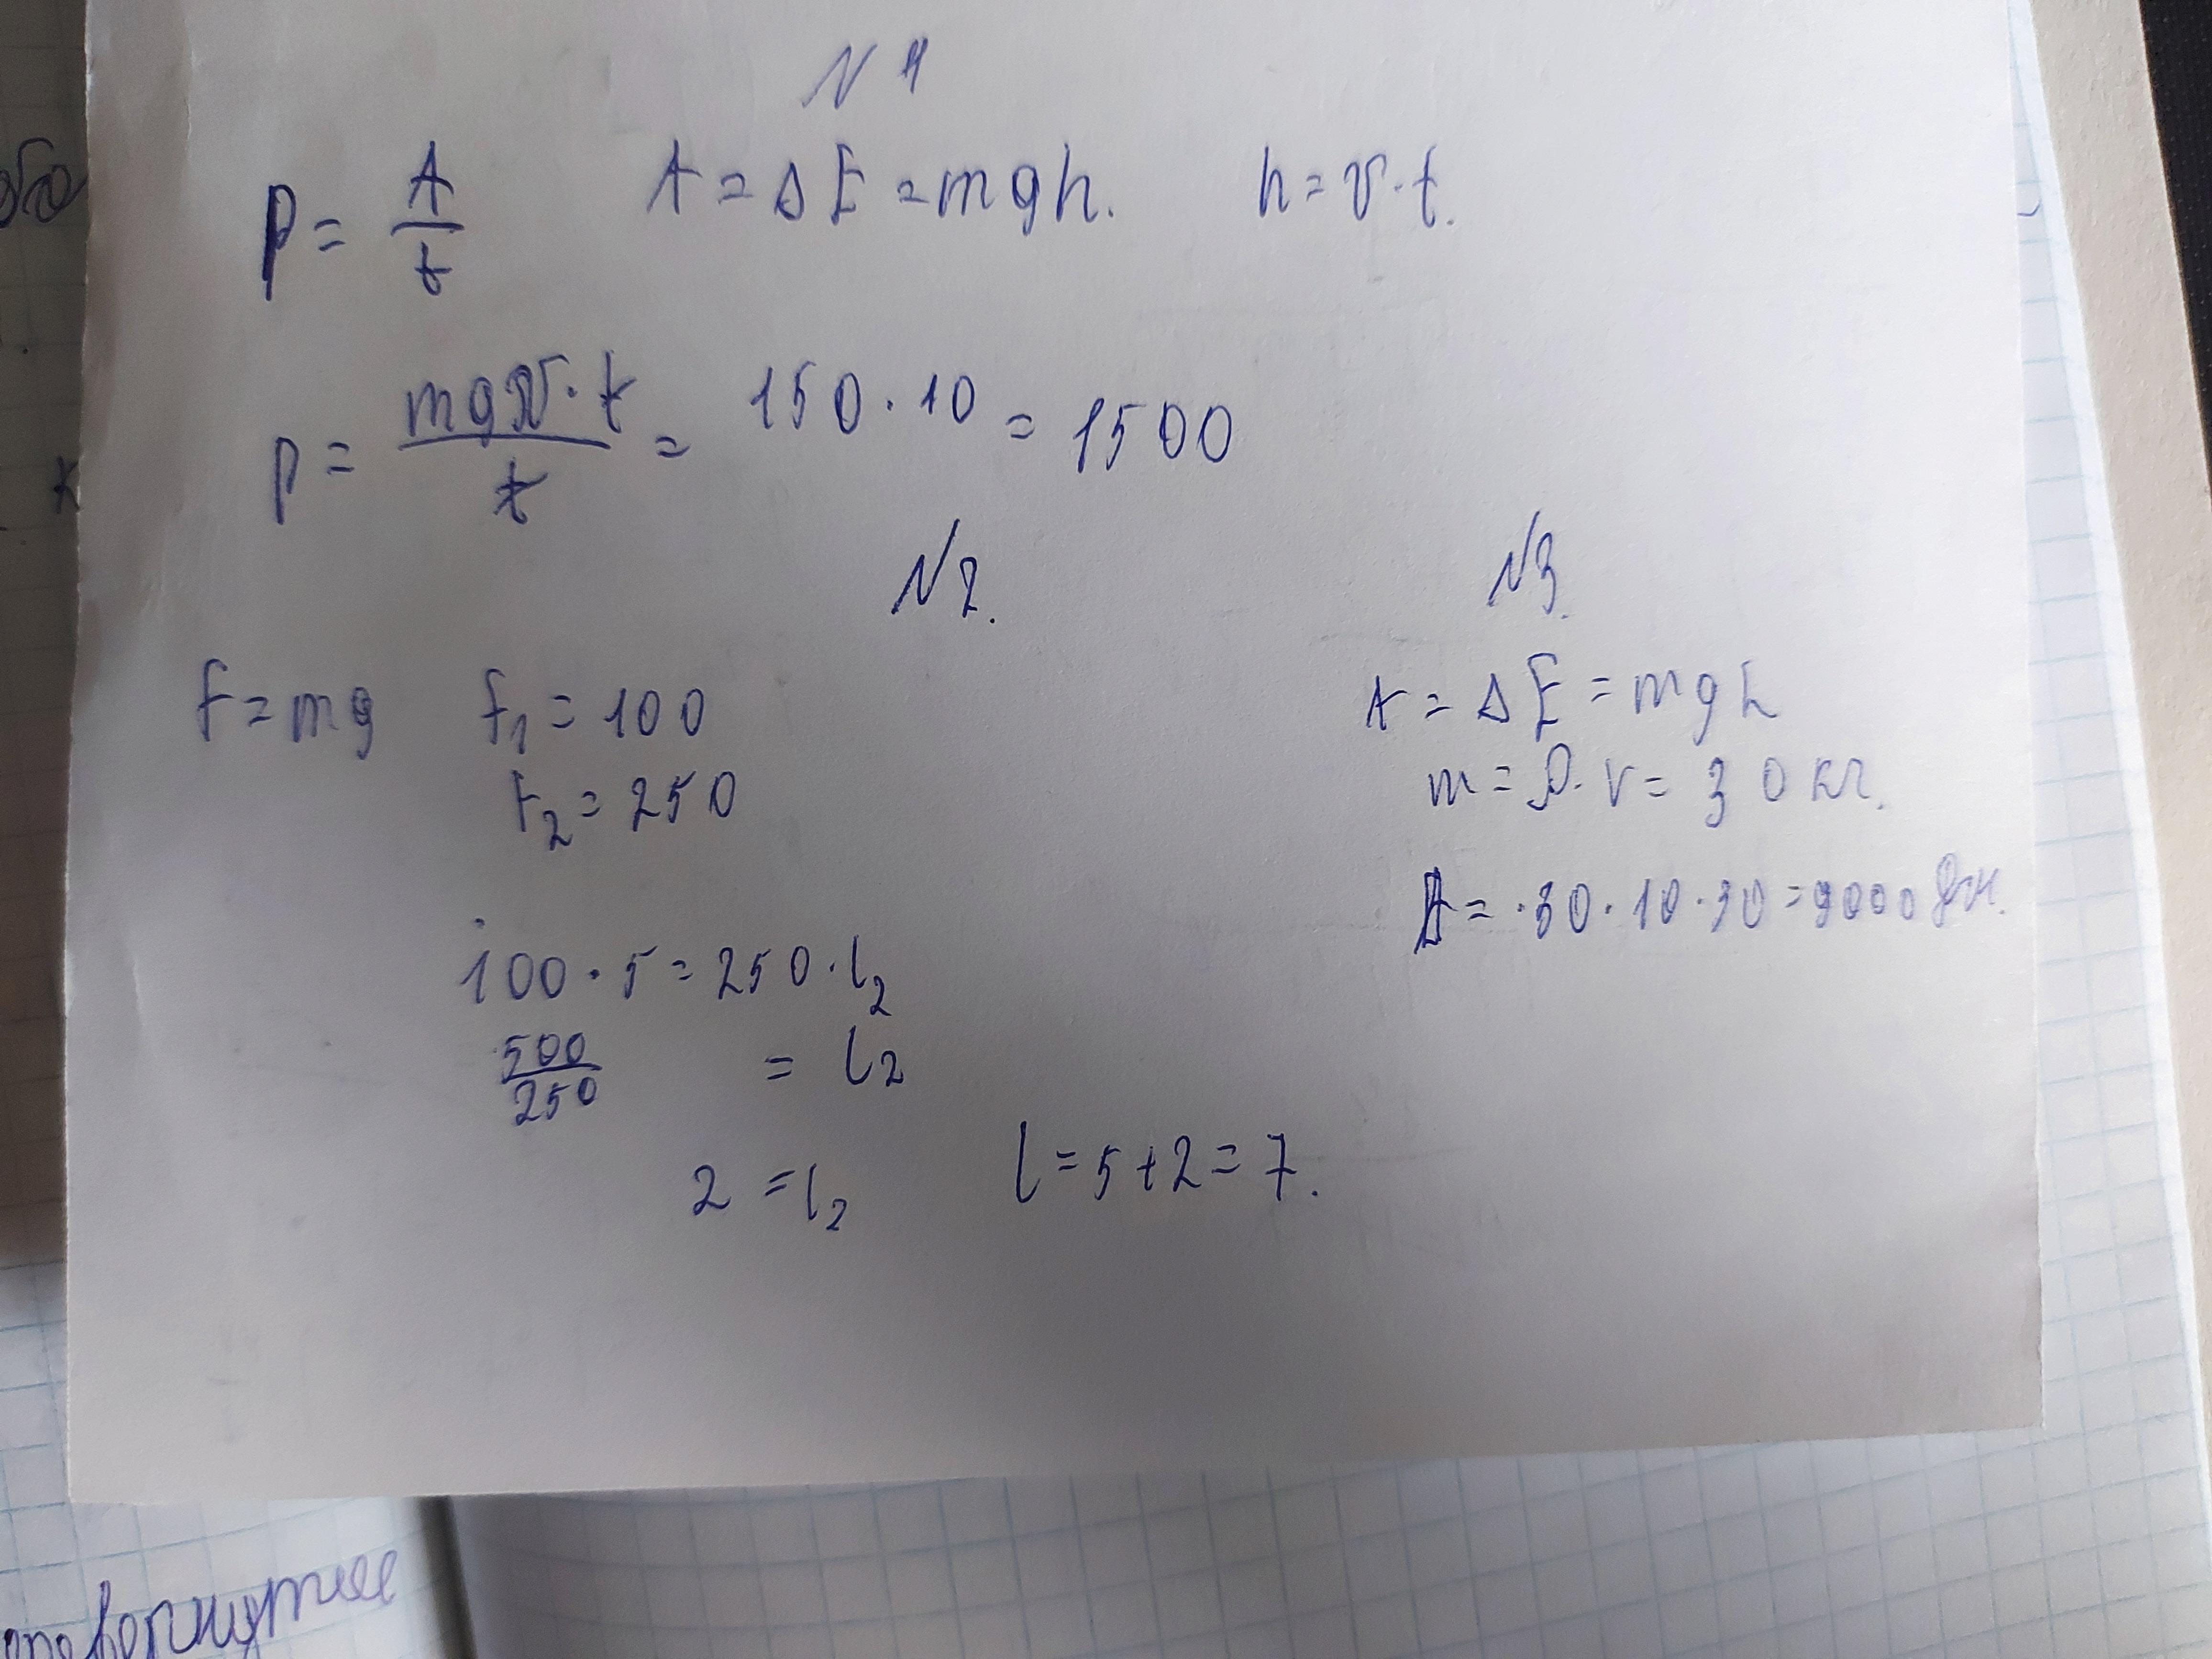 N 1
P = A/t A = ΔE = mgh. h = v·t.
P = mgv·t/t = 150·10 = 1500
N2.
F = mg F₁ = 100
F₂ = 250
100·5 = 250·l₂
500/250 = l₂
2 = l₂ l = 5+2 = 7.
N3.
A = ΔE = mgh
m = ρ·v = 30 кг.
A = ·30·10·30 = 9000 Дж.